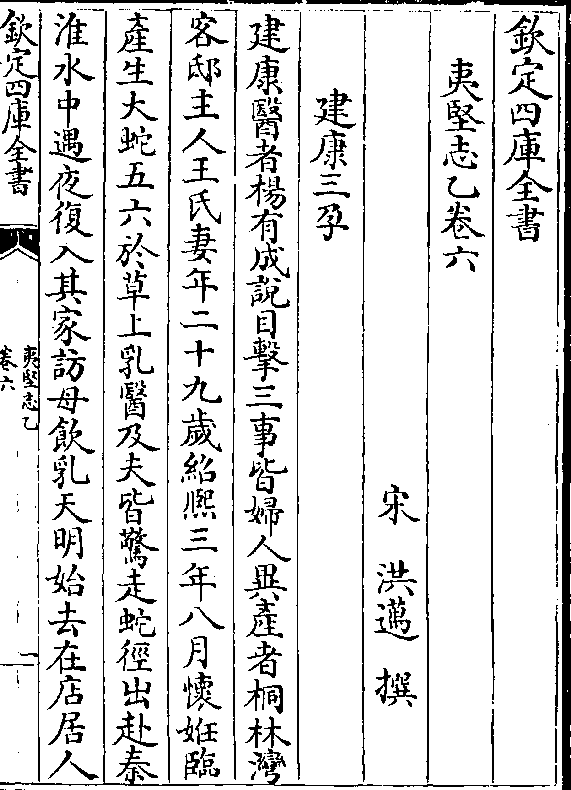 欽定四庫全書
夷堅志乙卷六
宋 洪邁 撰
建康三孕
建康醫者楊有成說目擊三事皆婦人異產者桐林灣
客邸主人王氏妻年二十九歲紹熙三年八月懷姙臨
產生大蛇五六於草上乳醫及夫皆驚走蛇徑出赴秦
淮水中遇夜復入其家訪母飲乳天明始去在店居人
欽定四庫全書
夷堅志乙
卷六
一